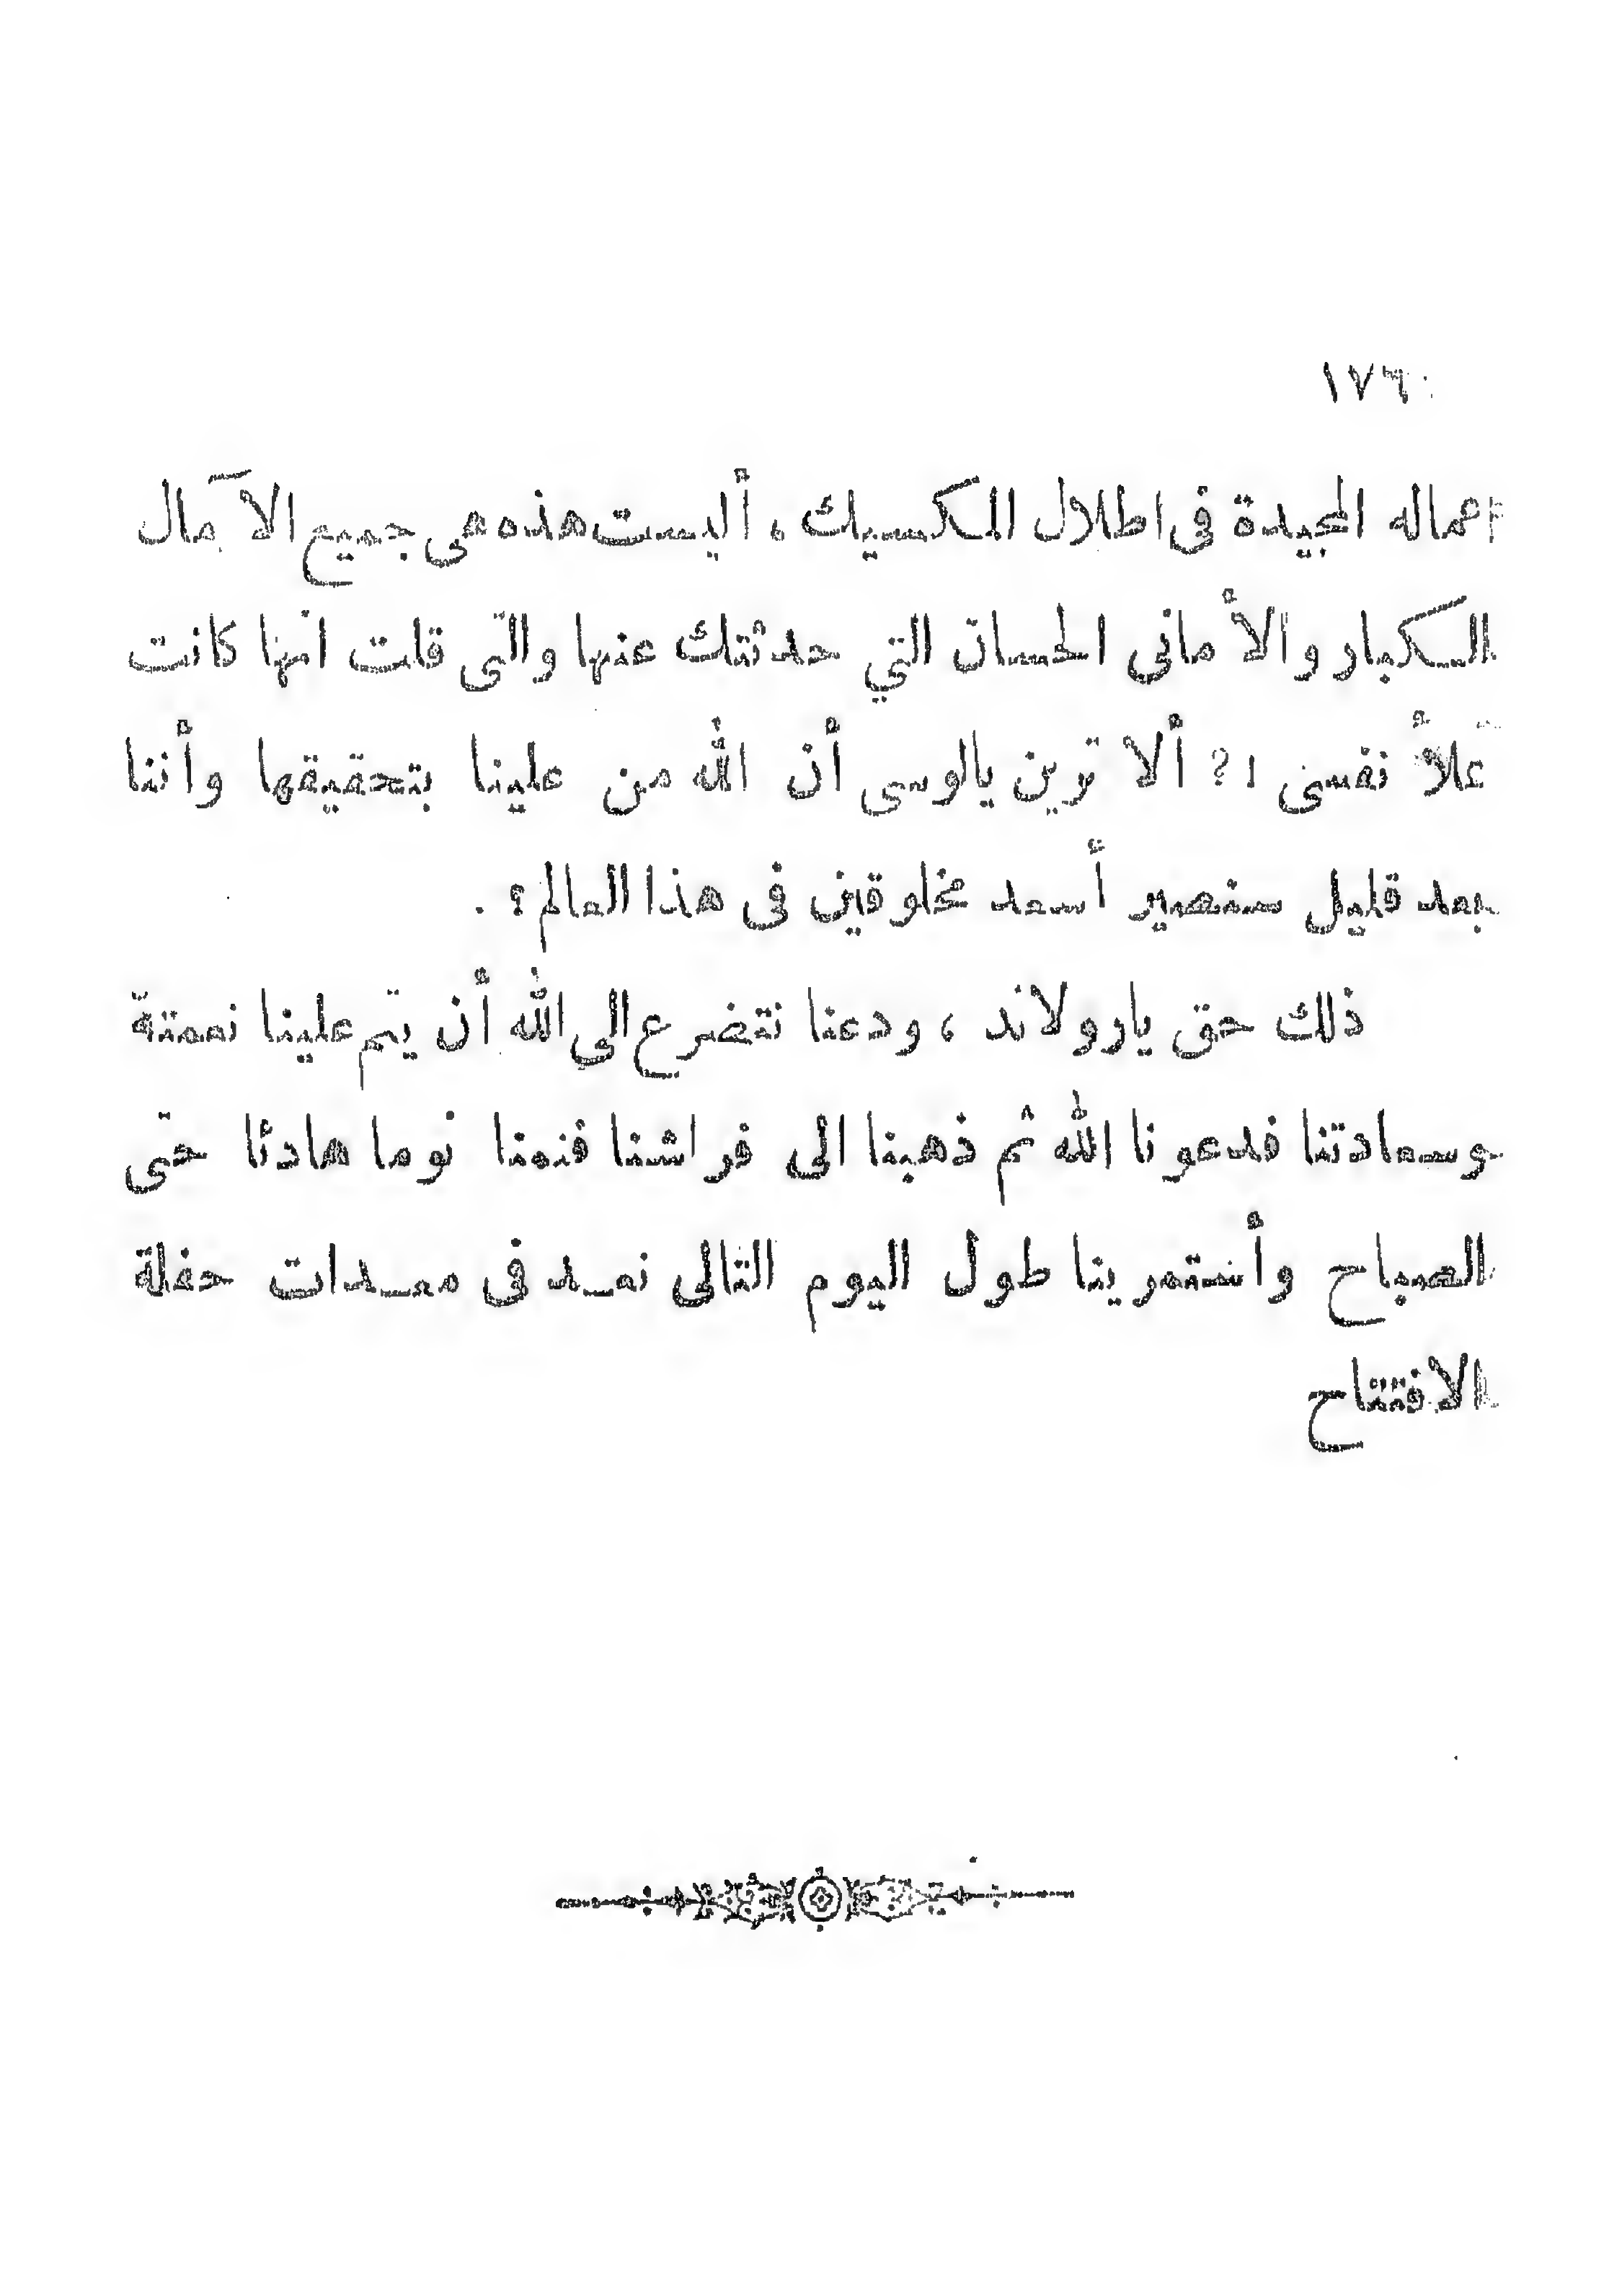 ١٧٦
اعماله المجيدة فى اطلال المكسيك ، أليست هذه هى جميع الآمال
الكبار والأمانى الحسان التي حدثتك عنها والتى قلت انها كانت
تملأ نفسى !? ألا ترين يالوسى أن الله من علينا بتحقيقها وأننا
بعد قليل سنصير أسعد مخلوقين فى هذا العالم ؟ .
ذلك حق يارولاند ، ودعنا نتضرع الى الله أن يتم علينا نعمته
وسعادتنا فدعونا الله ثم ذهبنا الى فراشنا فنمنا نوما هادئا حتى
الصباح وأستمرينا طول اليوم التالى نعد فى معدات حفلة
الافتتاح